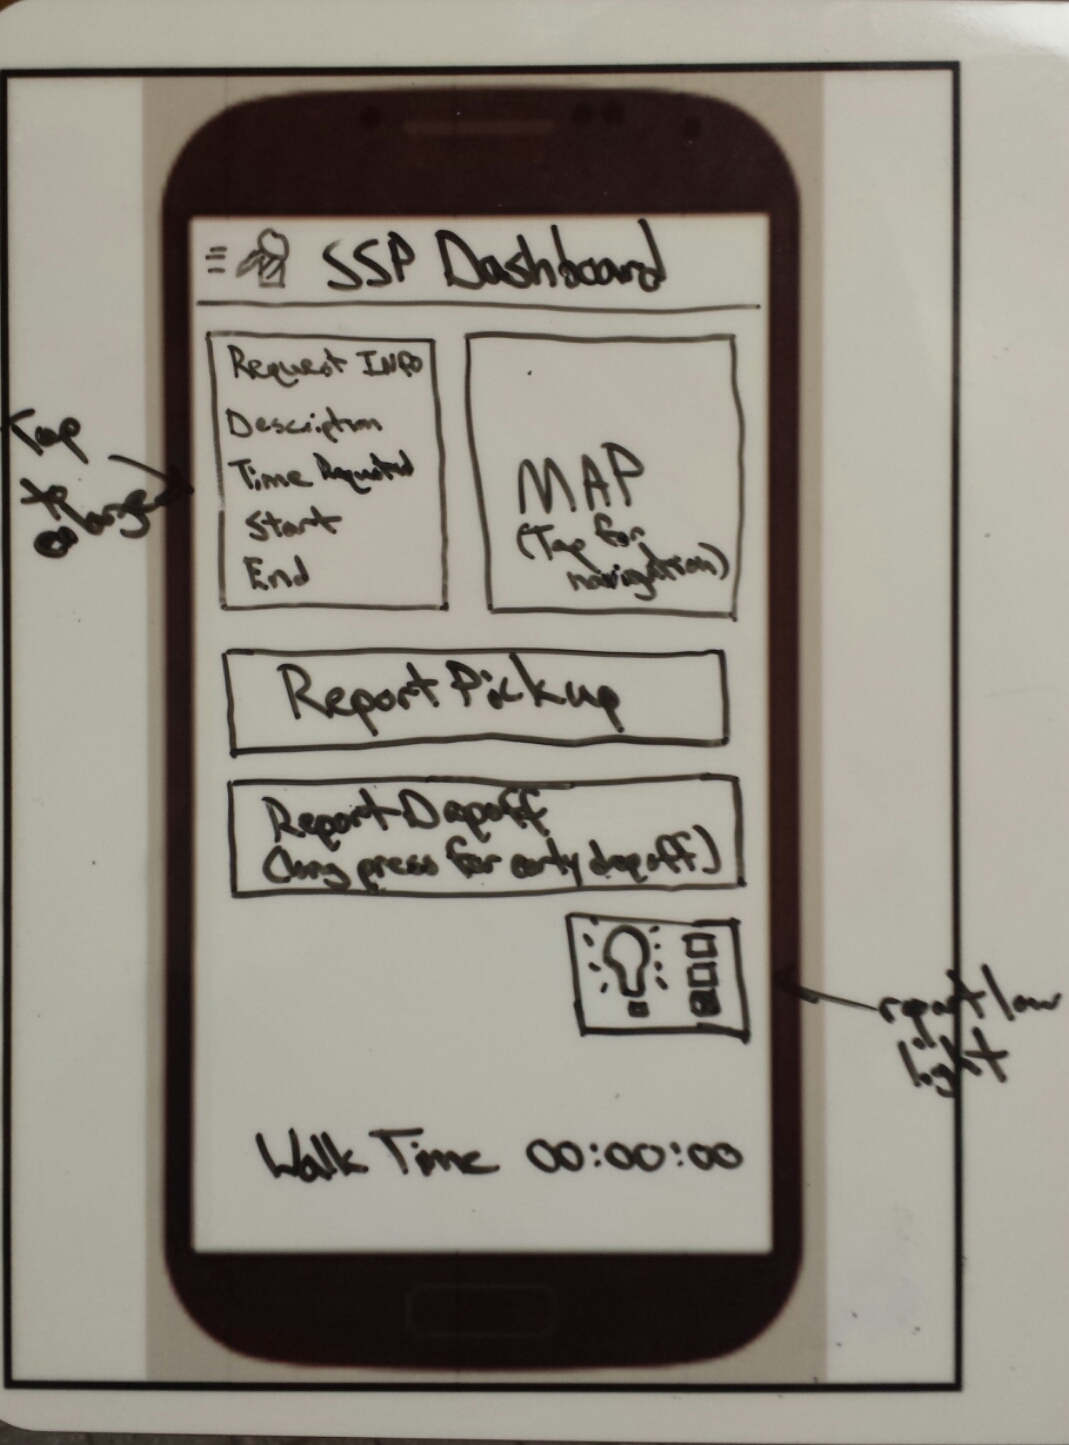 SSP Dashboard
Request INFO
Description
Time Requested
Start
End
MAP
(Tap for
navigation)
Tap
to
enlarge
Report Pickup
Report Dropoff
(long press for early dropoff)
report low
light
Walk Time 00:00:00